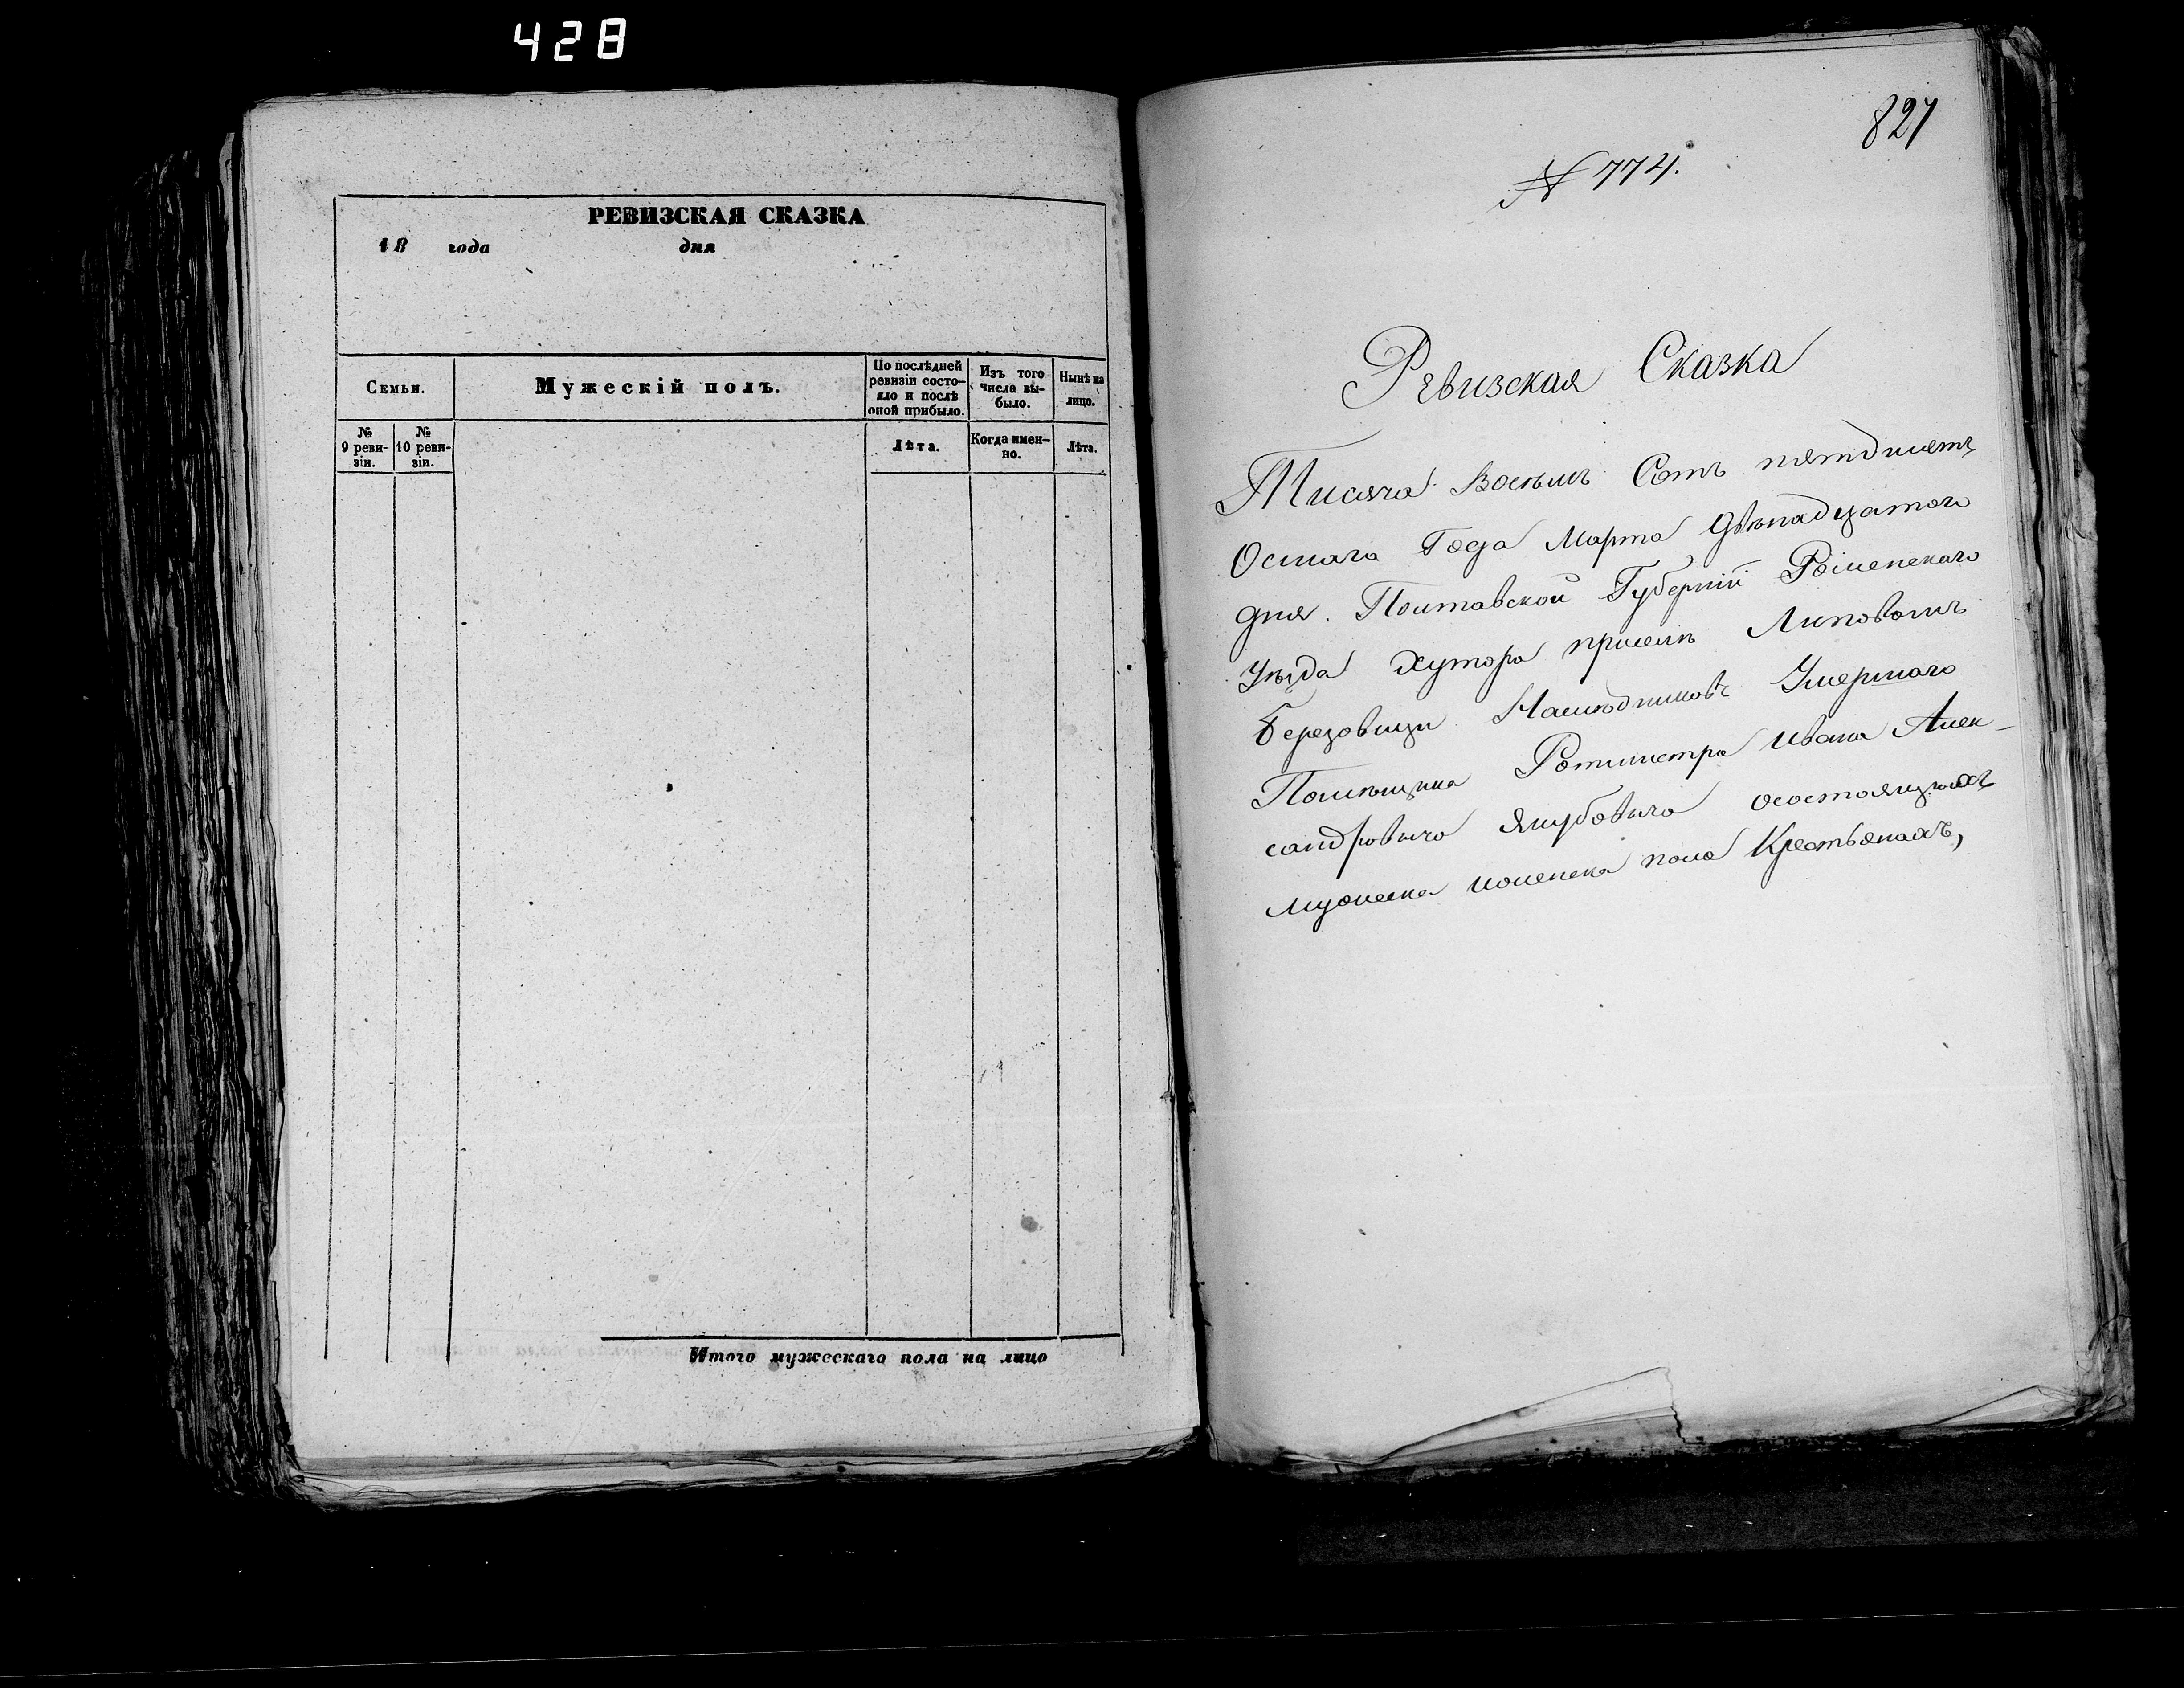 428
РЕВИЗСКАЯ СКАЗКА
18 года дня
Семьи.
Мужескій полъ.
По послѣдней ревизіи состояло и послѣ оной прибыло.
Изъ того числа выбыло.
Нынѣ на лицо.
№ 9 ревизіи.
№ 10 ревизіи.
Лѣта.
Когда именно.
Лѣта.
Итого мужескаго пола на лицо
827
№ 774.
Ревизская Сказка
Тисяча Восемь Сотъ пятдисятъ
Осмаго Года Марта Двѣнадцатого
дня. Полтавской Губерніи Роменскаго
Уѣзда Хутора приселѣ Липовомъ
Березовици Наслѣдниковъ Умершаго
Помѣщика Ротмистра Ивана Алек-
сандровича Якубовича осостоящихъ
мужеска иженска пола Крестьянахъ,